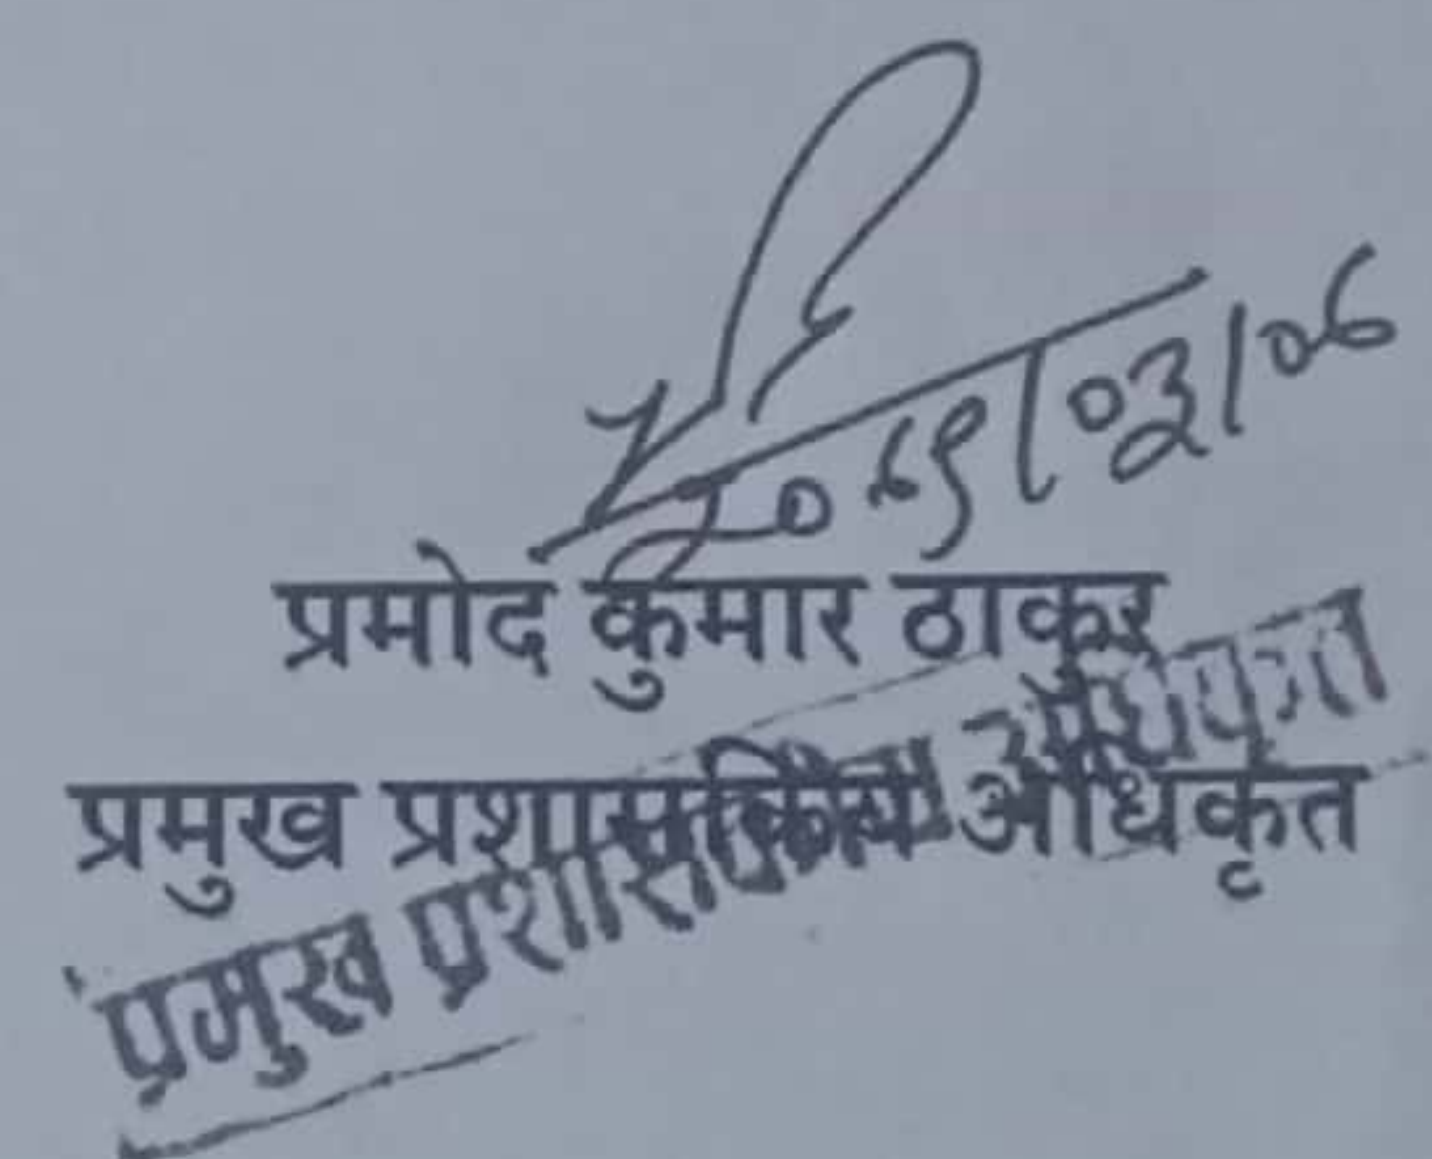 प्रमोद कुमार ठाकुर
प्रमुख प्रशासकिय अधिकृत
प्रमुख प्रशासकिय अधिकृत